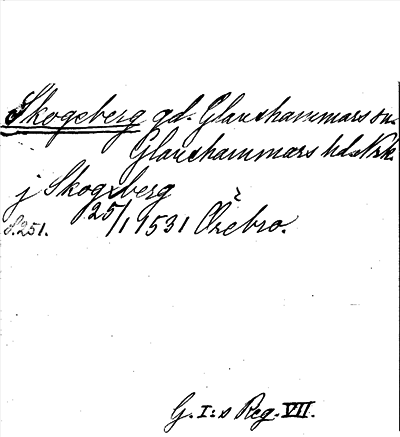 Skogsberg gd. Glanshammars sn.
Glanshammars hd. Nrk.
j Skogsberg
s. 251. 25/1 1531 Örebro.
G. I:s Reg. VII.